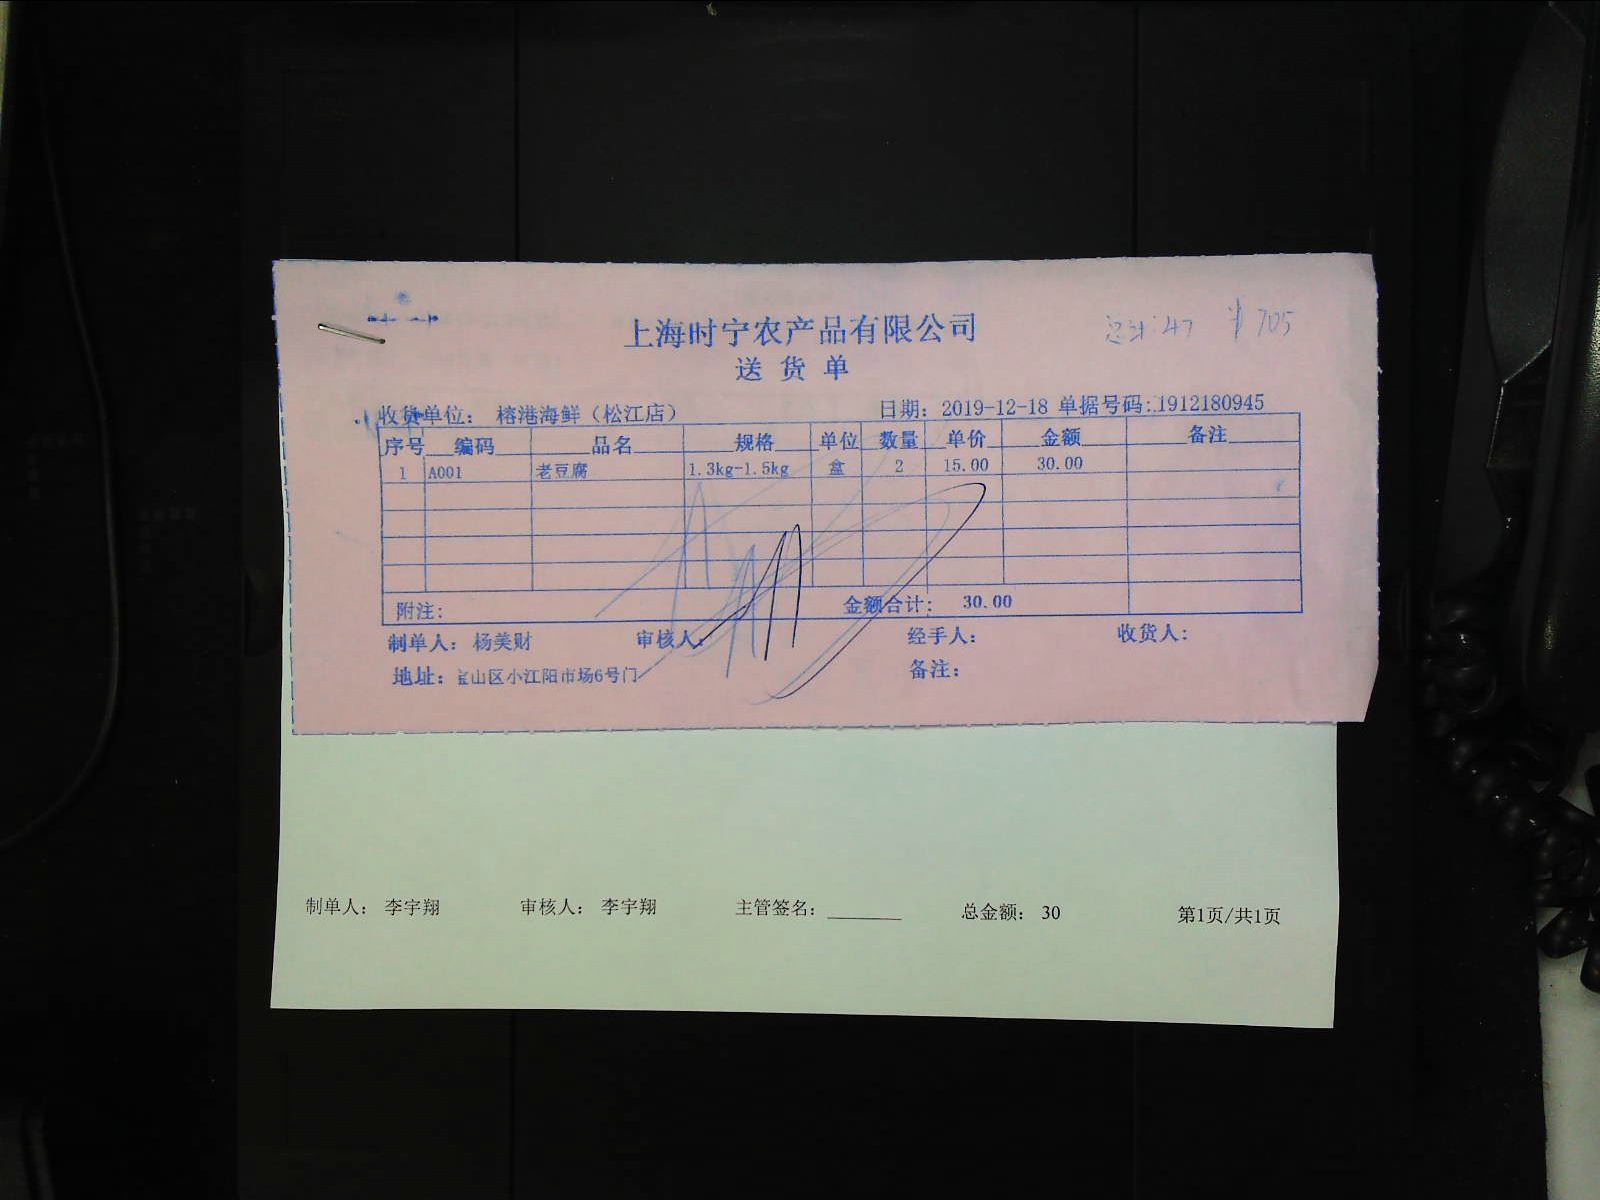 上海时宁农产品有限公司
47 ¥705
送货单
收货单位: 榕港海鲜（松江店） 日期: 2019-12-18 单据号码: 1912180945
序号 编码 品名 规格 单位 数量 单价 金额 备注
1 A001 老豆腐 1.3kg-1.5kg 盒 2 15.00 30.00
附注: 金额合计: 30.00
制单人: 杨美财 审核人: 经手人: 收货人:
地址: 宝山区小江阳市场6号门 备注:
制单人: 李宇翔 审核人: 李宇翔 主管签名: ________ 总金额: 30 第1页/共1页